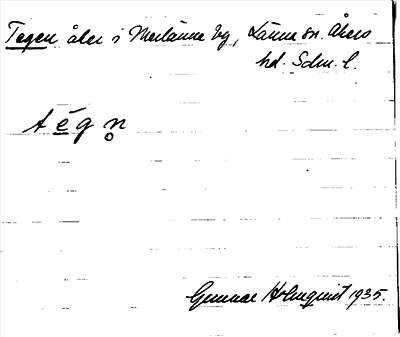 Tegen åker i Merlänna by, Länna sn. Åkers
hd. Sdm. l.
t é g n̥
Gunnar Holmquist 1935.